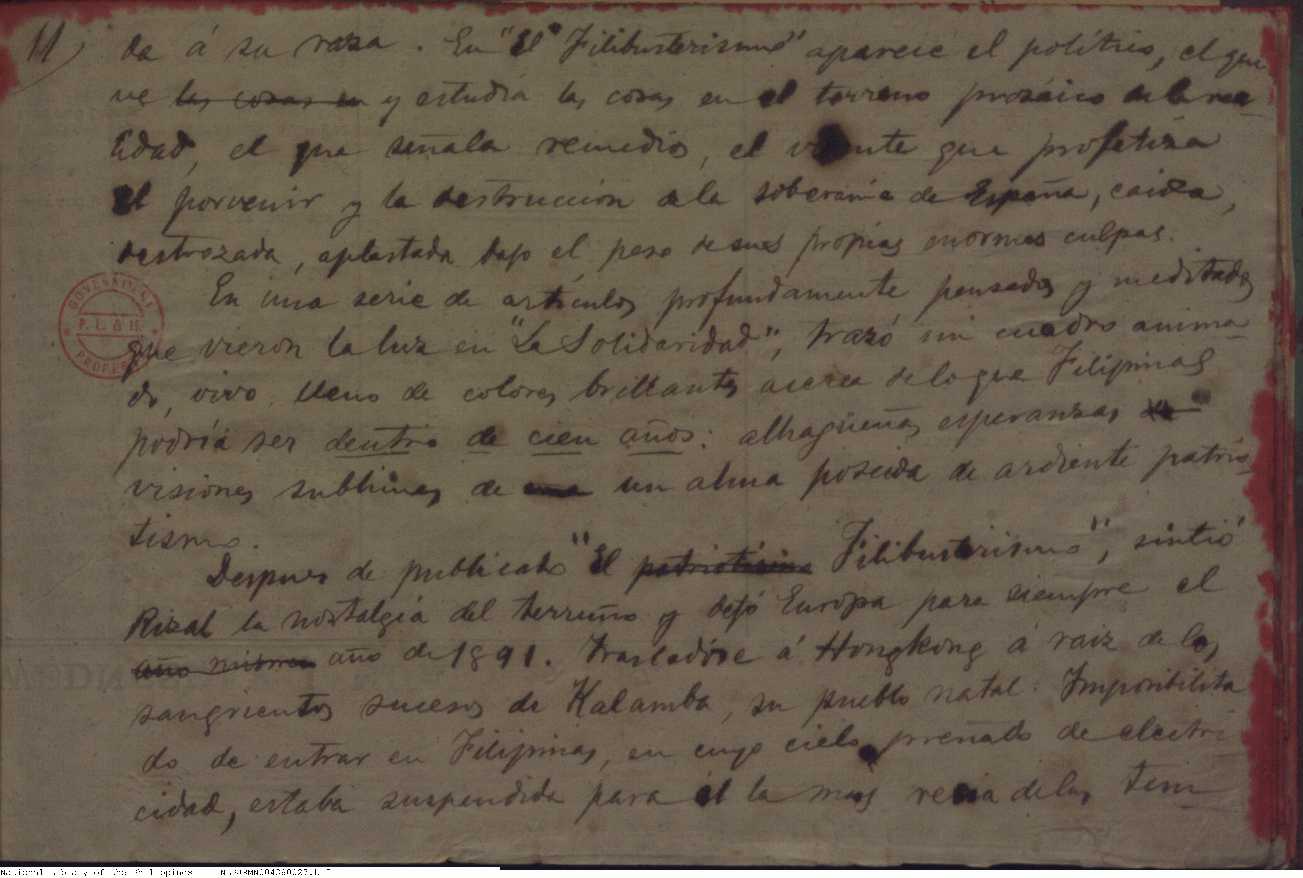 11)
da á su raza. En "El Filibusterismo" aparece el político, el que
ve las cosas en y estudia las cosas en el terreno prosáico de la rea-
lidad, el que señala remedios, el vidente que profetiza
el porvenir y la destrucción de la soberanía de España, caida,
destrozada, aplastada bajo el peso de sus propias enormes culpas.
En una serie de artículos profundamente pensados y meditados
que vieron la luz en "La Solidaridad", trazó un cuadro anima-
do, vivo, lleno de colores brillantes acerca de lo que Filipinas
podría ser dentro de cien años: alhagüeñas esperanzas
visiones sublimes de una un alma poseida de ardiente patrio-
tismo.
Despues de publicado "El patriotismo Filibusterismo", sintió
Rizal la nostalgia del terruño y dejó Europa para siempre el
año mismo año de 1891. Trasladóse á Hongkong á raiz de los
sangrientos sucesos de Kalamba, su pueblo natal. Imposibilita
do de entrar en Filipinas, en cuyo cielo, preñado de electri
cidad, estaba suspendida para él la más recia de las tem
GOVERNMENT
P. L. & M.
PROPERTY
National Library of the Philippines